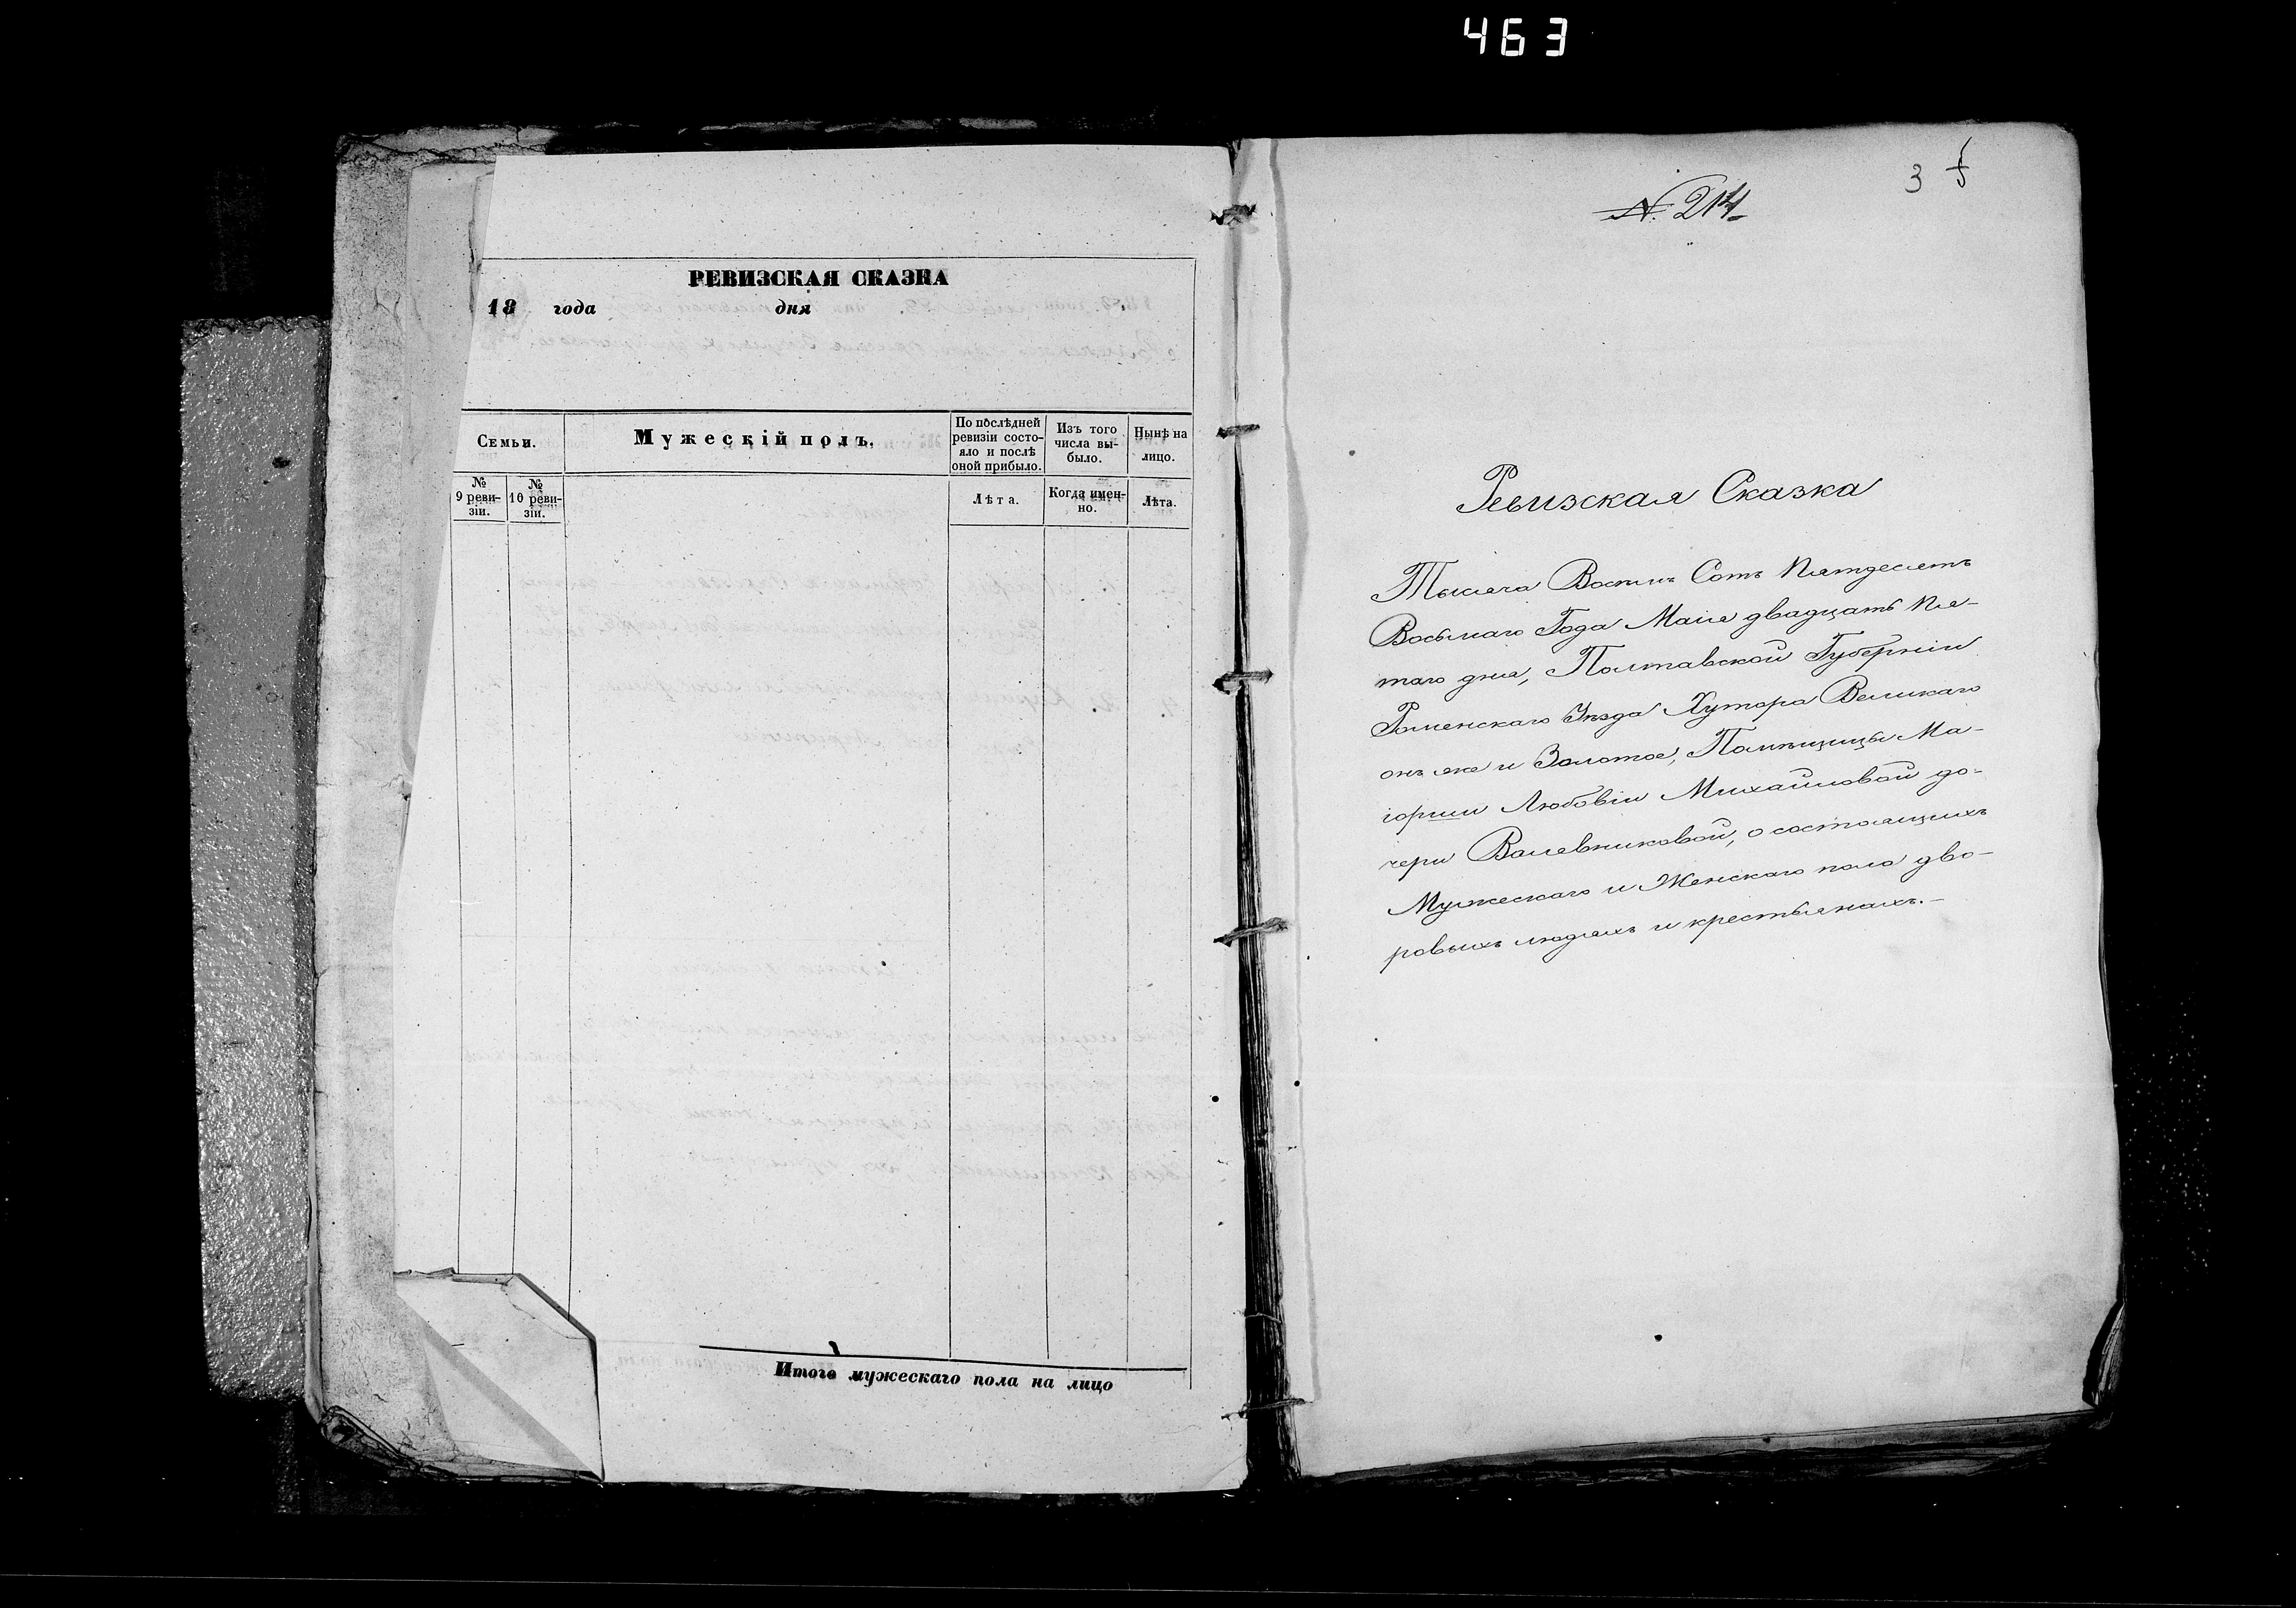 463
РЕВИЗСКАЯ СКАЗКА
18 года дня
Семьи.
Мужескій полъ.
По послѣдней ревизіи состояло и послѣ оной прибыло.
Изъ того числа выбыло.
Нынѣ на лицо.
№ 9 ревизіи.
№ 10 ревизіи.
Лѣта.
Когда именно.
Лѣта.
Итого мужескаго пола на лицо
3
N. 214
Ревизская Сказка
Тысяча Восемь Сотъ Пятдесятъ
Восьмаго Года Маія двадцать пя-
таго дня, Полтавской Губерніи
Роменскаго Уѣзда Хутора Великаго
онъ же и Золотое, Помѣщицы Ма-
іорши Любовіи Михайловой до-
чери Валевниковой, о состоящихъ
Мужескаго и Женскаго пола дво-
ровыхъ людяхъ и крестьянахъ.-